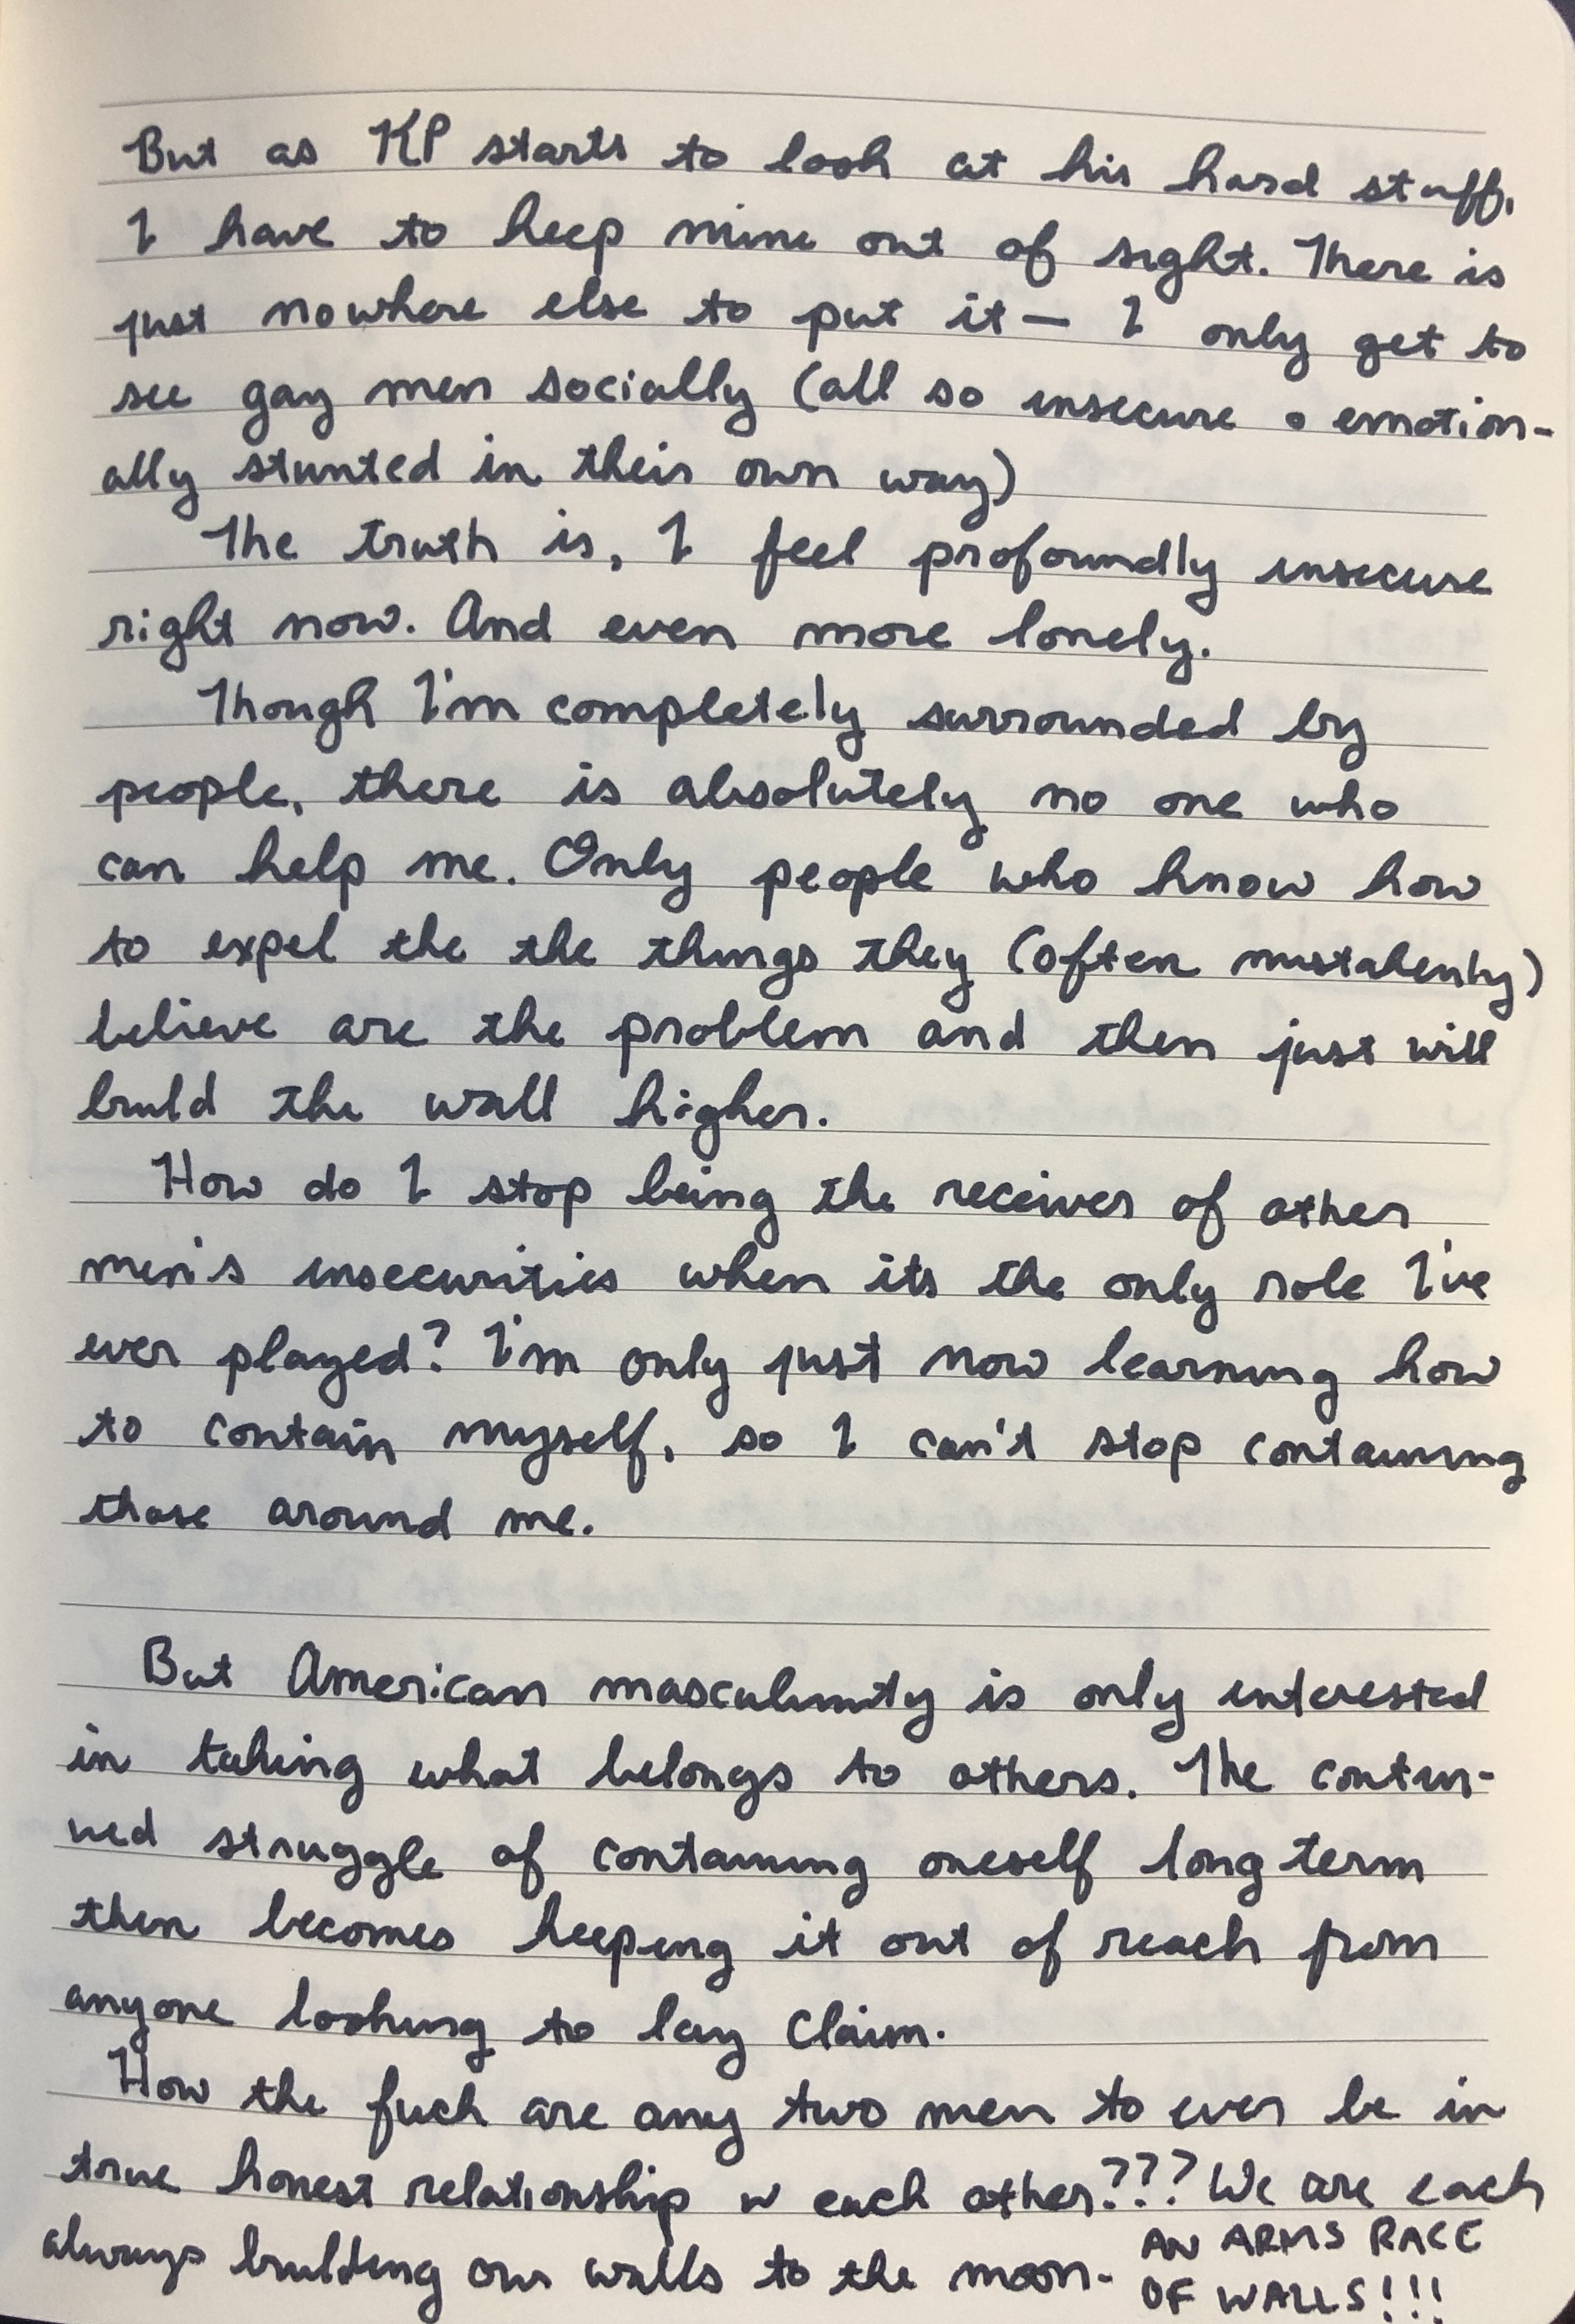 But as KP starts to look at his hard stuff,
I have to keep mine out of sight. There is
just nowhere else to put it — I only get to
see gay men socially (all so insecure & emotion-
ally stunted in their own way)
The truth is, I feel profoundly insecure
right now. And even more lonely.
Though I'm completely surrounded by
people, there is absolutely no one who
can help me. Only people who know how
to expel the the things they (often mistakenly)
believe are the problem and then just will
build the wall higher.
How do I stop being the receiver of other
men's insecurities when its the only role I've
ever played? I'm only just now learning how
to contain myself, so I can't stop containing
those around me.
But American masculinity is only interested
in taking what belongs to others. The contin-
ued struggle of containing oneself long term
then becomes keeping it out of reach from
anyone looking to lay claim.
How the fuck are any two men to ever be in
true honest relationship w each other??? We are each
always building our walls to the moon. AN ARMS RACE
OF WALLS!!!